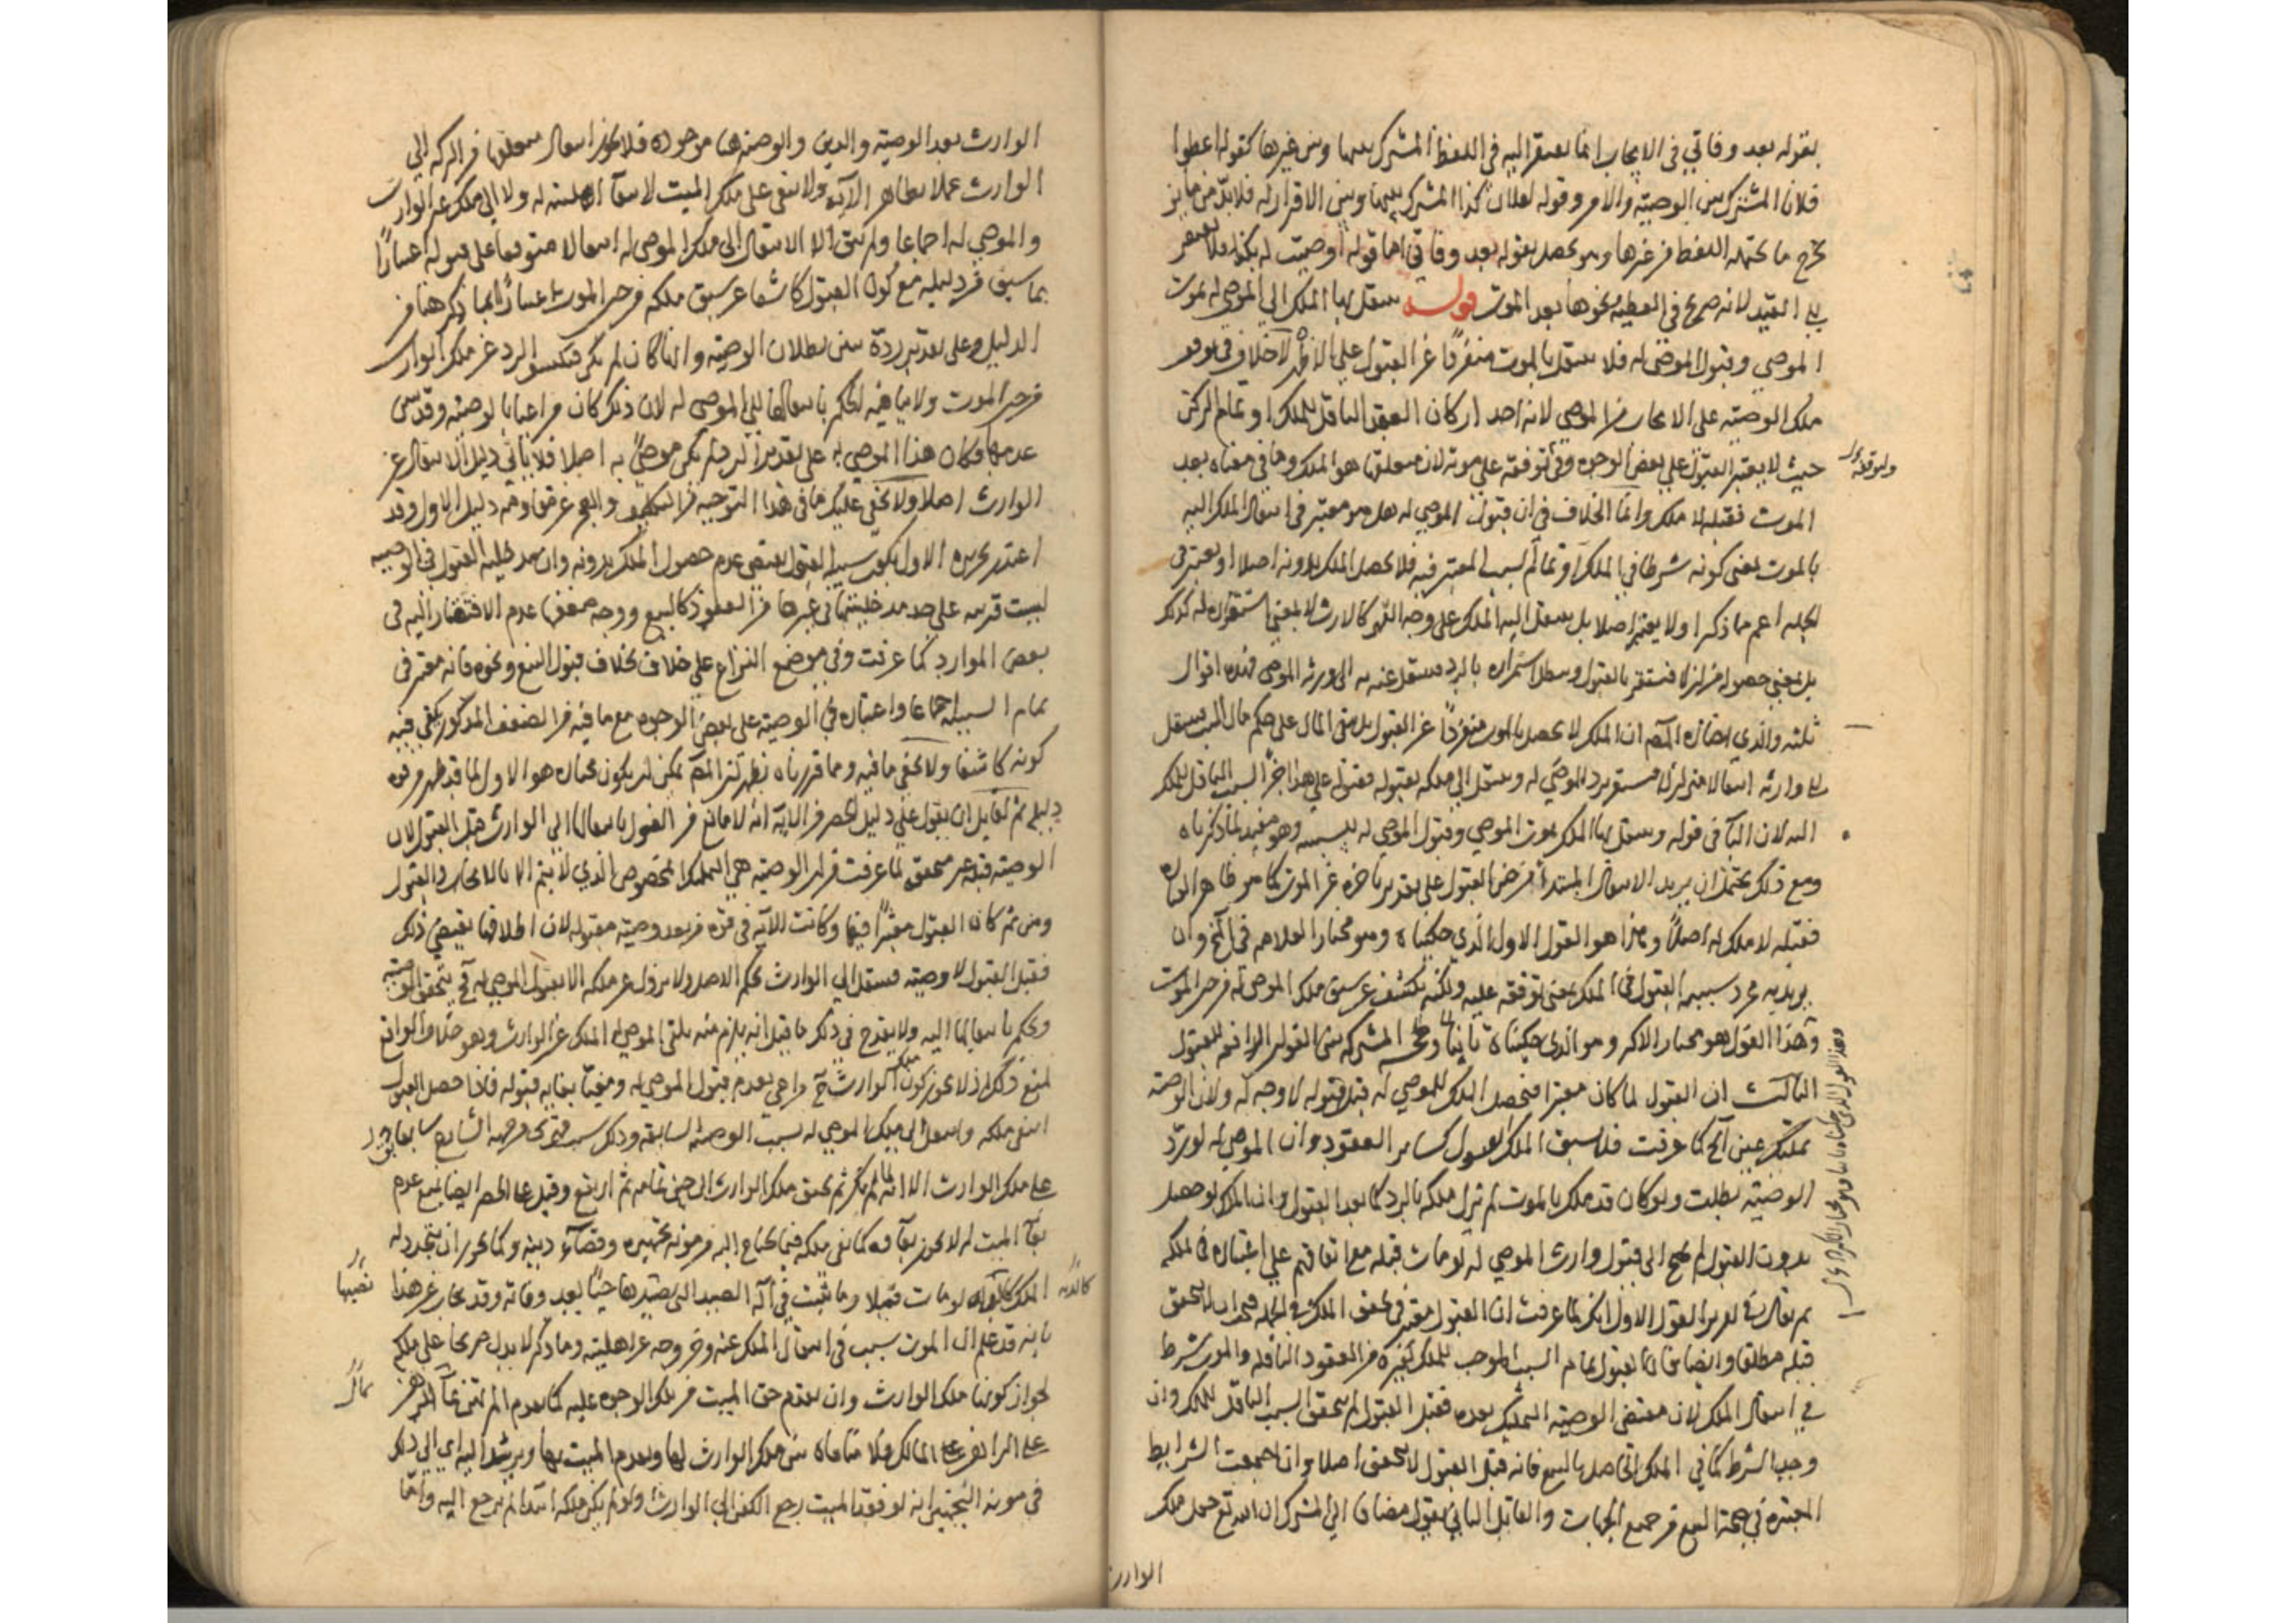 بقوله بعد وفاتي في الايجاب انما يفتقر اليه في اللفظ المشترك بينها وبين غيرها كقوله اعطوا
فلانا المشترك بين الوصية والامر وقوله لفلان كذا المشترك بينها وبين الاقرار له فلابد من مايز
يخرج ما يحتمله اللفظ من غيرها وهو يحصل بقوله بعد وفاتي اما قوله اوصيت له بكذا فلا يفتقر
الى القيد لانه صريح في العطية ونحوها بعد الموت قوله ينتقل بها الملك الى الموصى له بموت
الموصي وقبول الموصى له فلا ينتقل بالموت منفردا عن القبول على الاظهر لا خلاف في توقف
ملك الوصية على الايجاب من الموصي لانه احد اركان العقد الناقل للملك او تمام الركن
حيث لا يعتبر القبول على بعض الوجوه وفي توقفه على موته لان متعلقها هو الملك وما في معناه بعد
الموت فقبله لا ملك وانما الخلاف في ان قبول الموصى له هل هو معتبر في انتقال الملك اليه
بالموت بمعنى كونه شرطا في الملك او تمام السبب المعتبر فيه فلا يحصل الملك بدونه اصلا او يعتبر في
الجملة اعم مما ذكر او لا يعتبر اصلا بل ينتقل اليه الملك على وجه القهر كالارث لا بمعنى استقراره له كذلك
بل بمعنى حصوله متزلزلا فيستقر بالقبول ويبطل استمراره بالرد فينتقل عنه به الى ورثة الموصي فهذه اقوال
ثلثة والذي اختاره المصـ ان الملك لا يحصل بالموت منفردا عن القبول بل يبقى المال على حكم مال الميت ينتقل
الى وارثه انتقالا متزلزلا يستقر برد الموصى له وينتقل الى ملكه بقبوله فقبوله على هذا جزء السبب الناقل للملك
اليه لان الباء في قوله وينتقل بها الملك بموت الموصي وقبول الموصى له سببية وهو مفيد لما ذكرناه
ومع ذلك يحتمل ان يريد الانتقال المبتدأ من حين القبول على تقدير تاخره عن الموت كما هو ظاهر العبارة
فقبله لا ملك له اصلا وهذا هو القول الاول الذي حكيناه وهو مختار العلامة في الخ وان
يريد به مجرد سببية القبول في الملك بمعنى توقفه عليه ولكنه يكشف عن سبق ملك الموصى له من حين الموت
وهذا القول هو مختار الاكثر وهو الذي حكيناه ثانيا وحجة المشترك بين القولين الرافعة للقول
الثالث ان القبول لما كان معتبرا فحصول الملك للموصى له قبل قبوله لا وجه له ولان الوصية
تمليك عين الخ كما عرفت فلا يسبق الملك القبول كساير العقود وان الموصى له لو رد
الوصية بطلت ولو كان قد ملك بالموت لم تزل ملكه بالرد كما بعد القبول وان الملك لو حصل
بدون القبول لم يحتج الى قبول وارث الموصى له لو مات قبله مع اتفاقهم على اعتباره في ملكه
ثم يقال في تقرير القول الاول انك لما عرفت ان القبول معتبر في تحقق الملك في الجملة فيجب ان لا يتحقق
قبله مطلقا وايضا فان القبول تمام السبب الموجب للملك كغيره من العقود الناقلة والموت شرط
في انتقال الملك لان مقتضى الوصية التمليك بعده فقبل القبول لم يتحقق السبب الناقل للملك وان
وجد الشرط كما في الملك الحاصل بالبيع فانه قبل القبول لا يتحقق اصلا وان اجتمعت الشرايط
المعتبرة في صحة البيع من جميع الجهات والقايل الثاني يقول مضافا الى المشترك ان الله تع جعل ملك
الوارث
وهذا القول الذي حكيناه
الوارث بعد الوصية والدين والوصية هنا موجودة فلا يجوز انتقال متعلقها من التركة الى
الوارث عملا بظاهر الآية ولا يبقى على ملك الميت لانتفاء اهليته له ولا الى ملك غير الوارث
والموصى له اجماعا ولم يبق الا الانتقال الى ملك الموصى له انتقالا متوقفا على قبوله اعتبارا
بما سبق من دليله مع كون القبول كاشفا عن سبق ملكه من حين الموت اعتبارا بما ذكر هنا من
الدليل وعلى تقدير رده يتبين بطلان الوصية وانها كان لم تكن فيكشف الرد عن ملك الوارث
من حين الموت ولا ينافيه الحكم بانتقالها الى الموصى له لان ذلك كان مراعيا بالوصية وقد تبين
عدمها فكان هذا الموصى به على تقدير الرد لم يكن موصى به اصلا فلا ياتي دليل الانتقال عن
الوارث اصلا ولا يخفى عليك ما في هذا التوجيه من التكليف والبعد عن مقاومة دليل الاول وقد
اعتذر بحيره الاول بكون سببية القبول يقتضي عدم حصول الملك بدونه وان مدخلية القبول في الوصية
ليست قريبة على حد مدخليتها في غيرها من العقود كالبيع ووجه ضعفها عدم الافتقار اليه في
بعض الموارد كما عرفت وفي موضع النزاع على خلاف بخلاف قبول البيع ونحوه فانه معتبر في
تمام السببية اجماعا واعتباره في الوصية على بعض الوجوه مع ما فيه من الضعف المذكور يكفي فيه
كونه كاشفا ولا يخفى ما فيه ومما قررناه يظهر ان المصـ يمكن ان يكون مختاره هو الاول لما قد ظهر من قوة
دليله ثم لقايل ان يقول على دليل الحصر من الآية انه لا مانع من القول بانتقالها الى الوارث قبل القبول لان
الوصية قبله غير متحققة لما عرفت من ان الوصية هي التمليك المخصوص الذي لا يتم الا بالايجاب والقبول
ومن ثم كان القبول معتبرا فيها وكانت الآية في قوة من بعد وصية مقبولة لان اطلاقها يقتضي ذلك
فقبل القبول لا وصية فينتقل الى الوارث بحكم الاصل ولا يزول عن ملكه الا بقبول الموصى له فح يتحقق الوصية
ويحكم بانتقالها اليه ولا يقدح في ذلك ما قيل انه يلزم منه تلقى الموصى له الملك عن الوارث وهو خلاف الواقع
لمنع ذلك اذ لا يجوز كون ملك الوارث ح مراعى بعدم قبول الموصى له ومغيا بغاية قبوله فاذا حصل القبول
انتفى ملكه وانتقل الى ملك الموصى له بسبب الوصية السابقة وذلك سبب
على ملك الوارث الا انه لما لم يكن ثم تحقق ملك الوارث الى حين تمامه ثم ارتفع وقيل على الحصر ايضا بمنع عدم
بقاء الميت له لا يجوز بقاؤه كما يبقى ملكه فيما يحتاج اليه من مؤنة تجهيزه وقضاء دينه وكما يجوز ان يتجدد له
الملك لو مات قتيلا وما يثبت في آلة الصيد التي نصبها حيا بعد وفاته وقد يجاب عن هذا
بانه قد علم ان الموت سبب في انتقال الملك عنه وخروجه عن اهليته وما ذكر لا يدل صريحا على ملكه
لجواز كونها ملك الوارث وان يقدم حق الميت من تلك الوجوه عليه كما يقدم المرتهن بماله
على الراهن المالك فلا منافاة بين ملك الوارث لها وتقدم الميت بها ويرشد اليه اي الى ذلك
في مونة التجهيز انه لو فقد الميت رجع الكفن الى الوارث ولو لم يكن ملكه ابتداء لم يرجع اليه واما